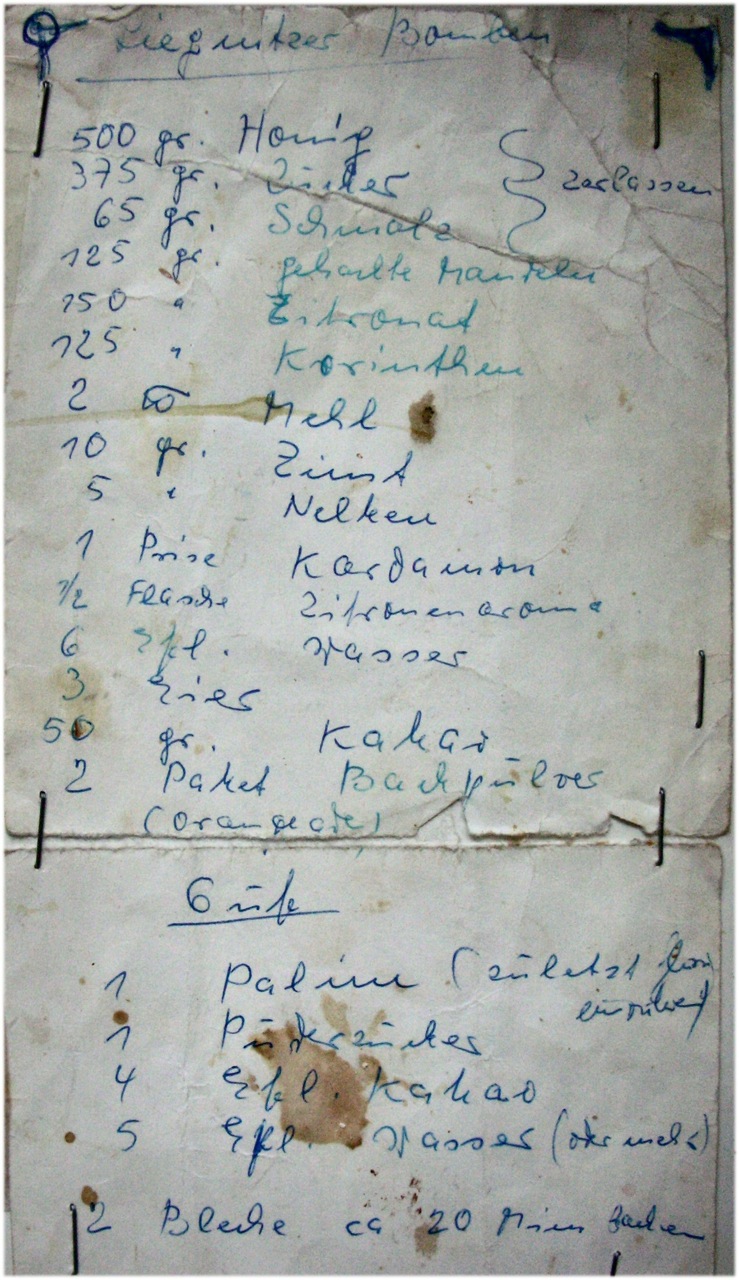 Liegnitzer Bomben
500 gr. Honig
375 gr. Zucker } zerlassen
65 gr. Schmalz
125 gr. gehackte Mandeln
150 " Zitronat
125 " Korinthen
2 ℔ Mehl
10 gr. Zimt
5 " Nelken
1 Prise Kardamon
1/2 Flasche Zitronenaroma
6 Eßl. Wasser
3 Eier
50 gr. Kakao
2 Paket Backpulver
(Orangeade)
Guß
1 Palmin (zuletzt
einrühren)
1 Puderzucker
4 Eßl. Kakao
5 Eßl. Wasser (oder mehr)
2 Bleche ca 20 Min backen